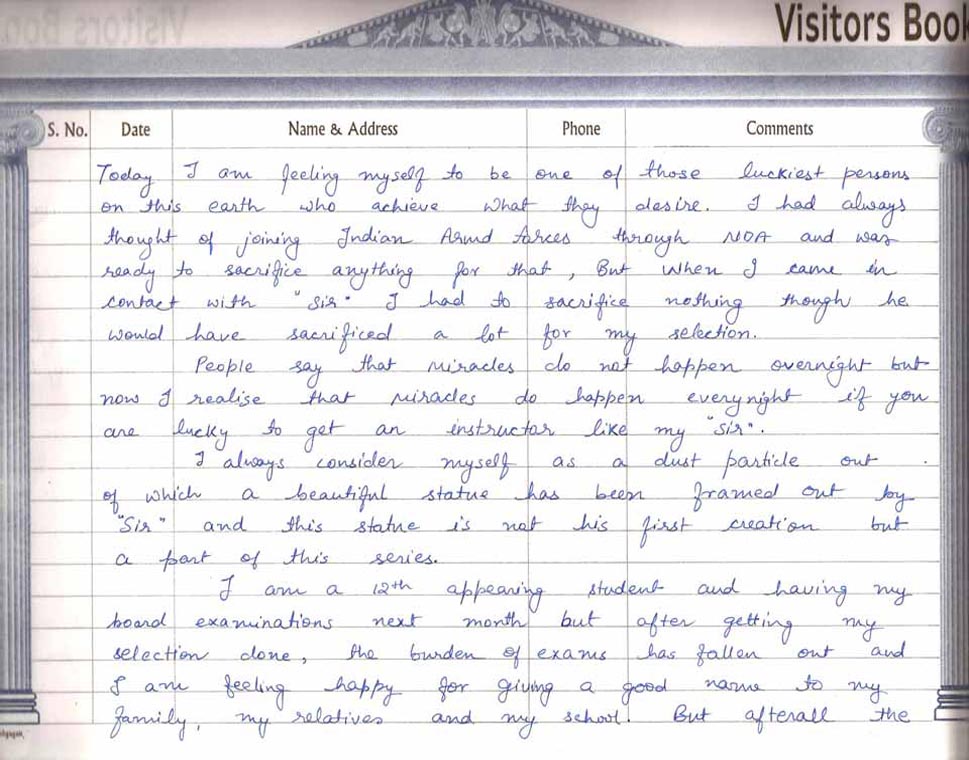 Visitors Book
S. No. Date Name & Address Phone Comments
Today I am feeling myself to be one of those luckiest persons
on this earth who achieve what they desire. I had always
thought of joining Indian Armd forces through NDA and was
ready to sacrifice anything for that, But when I came in
contact with "Sir" I had to sacrifice nothing though he
would have sacrificed a lot for my selection.
People say that miracles do not happen overnight but
now I realise that miracles do happen everynight if you
are lucky to get an instructor like my "Sir".
I always consider myself as a dust particle out
of which a beautiful statue has been framed out by
"Sir" and this statue is not his first creation but
a part of this series.
I am a 12th appearing student and having my
board examinations next month but after getting my
selection done, the burden of exams has fallen out and
I am feeling happy for giving a good name to my
family, my relatives and my school. But afterall the